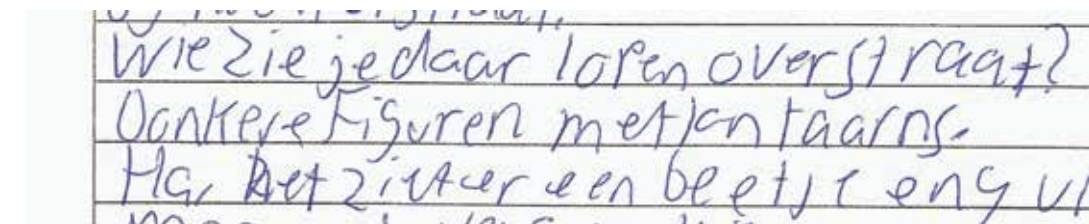 Wie zie je daar lopen over straat?
Donkere Figuren met lantaarns.
Ha, het ziet er een beetje eng